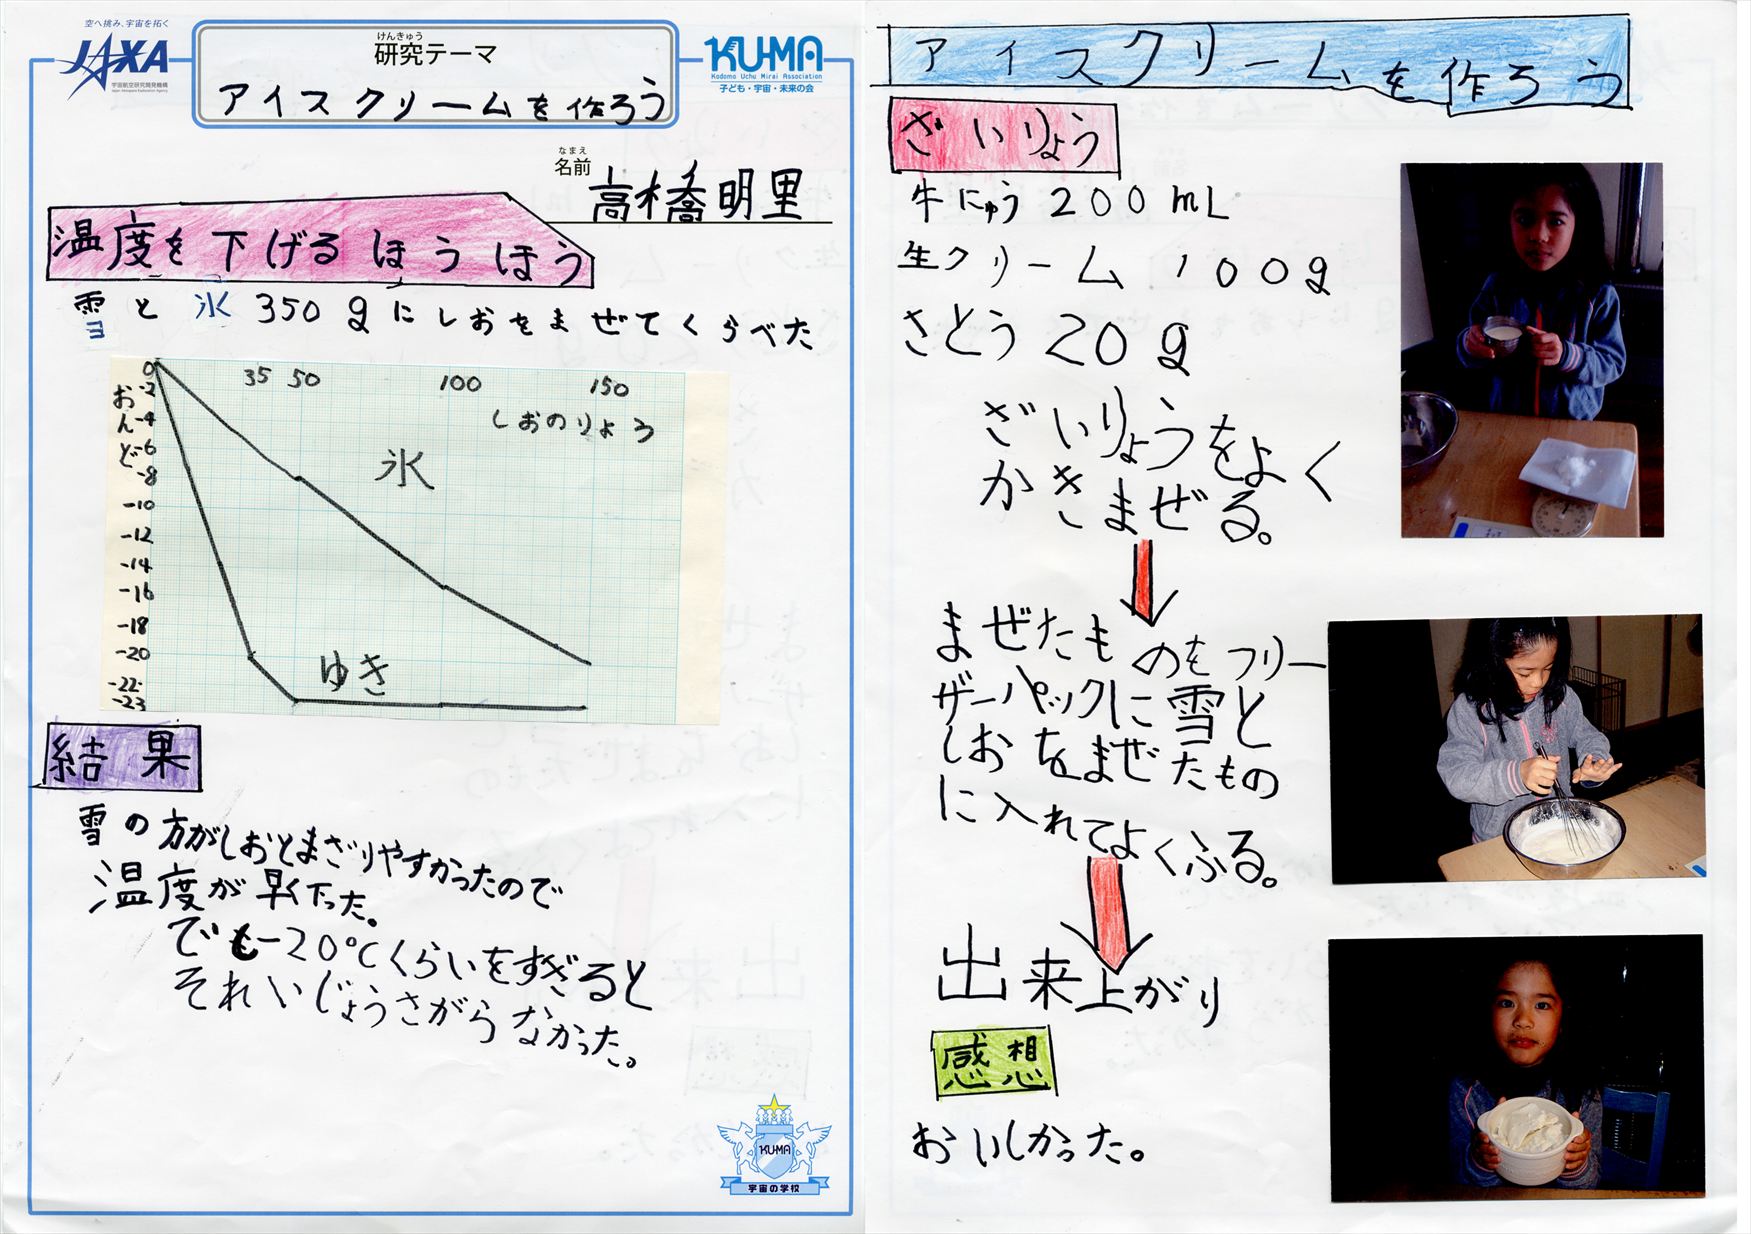 空へ挑み、宇宙を拓く
JAXA
宇宙航空研究開発機構
Japan Aerospace Exploration Agency
けんきゅう
研究テーマ
アイスクリームを作ろう
KU-MA
Kodomo Uchu Mirai Association
子ども・宇宙・未来の会
なまえ
名前 高橋明里
温度を下げるほうほう
雪と氷350gにしおをまぜてくらべた
0 35 50 100 150
しおのりょう
おんど
-2
-4
-6
-8
-10
-12
-14
-16
-18
-20
-22
-23
氷
ゆき
結果
雪の方がしおとまざりやすかったので
温度が早く下った。
でも-20℃くらいをすぎると
それいじょうさがらなかった。
KU-MA
宇宙の学校
アイスクリームを作ろう
ざいりょう
牛にゅう200mL
生クリーム100g
さとう20g
ざいりょうをよく
かきまぜる。
まぜたものをフリー
ザーパックに雪と
しおをまぜたもの
に入れてよくふる。
出来上がり
感想
おいしかった。